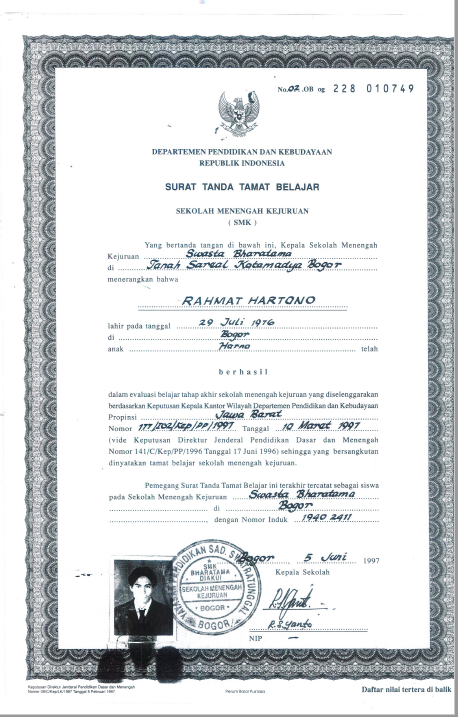 No. 02 .OB og 228 010749
DEPARTEMEN PENDIDIKAN DAN KEBUDAYAAN
REPUBLIK INDONESIA
SURAT TANDA TAMAT BELAJAR
SEKOLAH MENENGAH KEJURUAN
( SMK )
Yang bertanda tangan di bawah ini, Kepala Sekolah Menengah
Kejuruan Swasta Bharatama
di Tanah Sareal Kotamadya Bogor
menerangkan bahwa
RAHMAT HARTONO
lahir pada tanggal 29 Juli 1976
di Bogor
anak Harno telah
berhasil
dalam evaluasi belajar tahap akhir sekolah menengah kejuruan yang diselenggarakan
berdasarkan Keputusan Kepala Kantor Wilayah Departemen Pendidikan dan Kebudayaan
Propinsi Jawa Barat
Nomor 177/I02/Kep/PP/1997 Tanggal 10 Maret 1997
(vide Keputusan Direktur Jenderal Pendidikan Dasar dan Menengah
Nomor 141/C/Kep/PP/1996 Tanggal 17 Juni 1996) sehingga yang bersangkutan
dinyatakan tamat belajar sekolah menengah kejuruan.
Pemegang Surat Tanda Tamat Belajar ini terakhir tercatat sebagai siswa
pada Sekolah Menengah Kejuruan Swasta Bharatama
di Bogor
dengan Nomor Induk 1940 2411
Bogor 5 Juni 1997
Kepala Sekolah
SMK
BHARATAMA
DIAKUI
SEKOLAH MENENGAH
KEJURUAN
BOGOR
BOGOR
R.S. Yanto
NIP –
Keputusan Direktur Jenderal Pendidikan Dasar dan Menengah
Perum Balai Pustaka
Daftar nilai tertera di balik